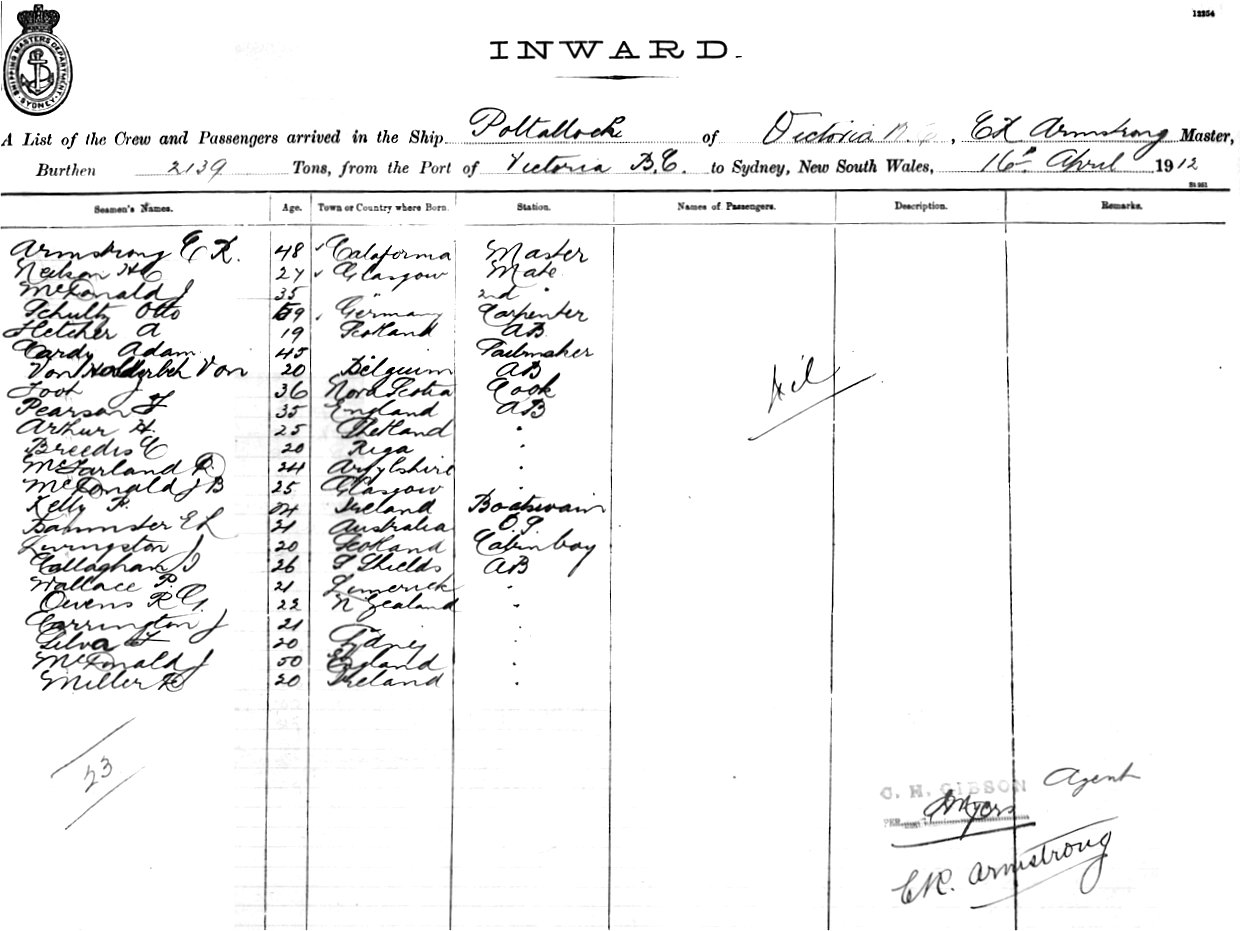 12254
SHIPPING MASTERS DEPARTMENT SYDNEY
INWARD.
A List of the Crew and Passengers arrived in the Ship Poltalloch of Victoria B.C., CR Armstrong Master,
Burthen 2139 Tons, from the Port of Victoria B.C. to Sydney, New South Wales, 16th April 1912
Seamen's Names. Age. Town or Country where Born. Station. Names of Passengers. Description. Remarks.
Armstrong C R. 48 Califorma Master
Neilson HC 27 Glasgow Mate
McDonald J 35 " 2nd "
Schultz Otto 59 Germany Carpenter
Fletcher A 19 Scotland AB
Cardy Adam 45 Sailmaker
Von Von 20 Belguim AB
Foot J 36 Nova Scotia Cook
Pearson F 35 England AB
Arthur H. 25 Shetland "
Breedis C 20 Riga "
McFarland R 24 Argylshire "
McDonald J B 25 Glasgow "
Kelly P. 24 Ireland Boatswain
Bannister E L 21 Australia O.S.
Livingston J 20 Scotland Cabin boy
Callaghan J 26 S Shields AB
Wallace P. 21 Limerick "
Owens R G. 22 N Zealand "
Carrington J 21 "
Silva F 20 Sydney "
McDonald J 50 England "
Miller H 20 Ireland "
Nil
23
C. H. GIBSON Agent
PER Myers
CR. Armstrong